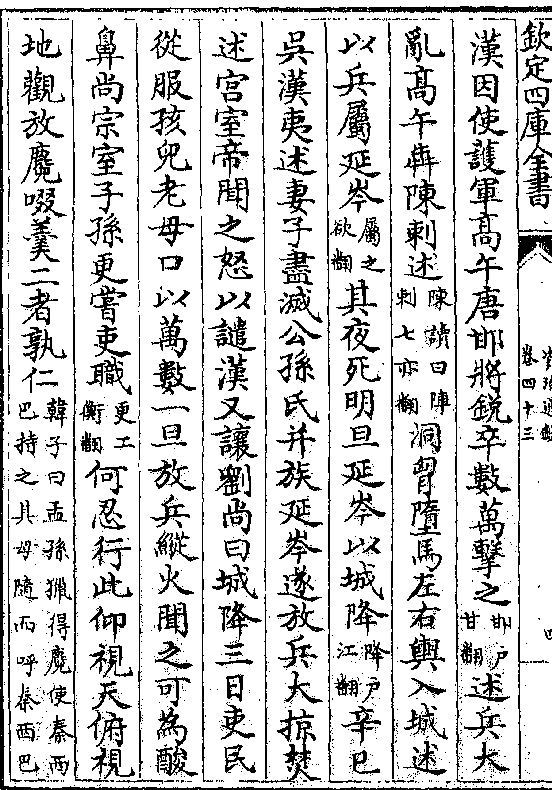 欽定四庫全書
卷四十三
漢因使護軍高午唐邯將銳卒數萬擊之邯戶甘翻述兵大
亂高午犇陳刺述陳讀曰陣刺七亦翻洞胷墮馬左右輿入城述
以兵屬延岑屬之欲翻其夜死明旦延岑以城降降戶江翻辛巳
吳漢夷述妻子盡滅公孫氏并族延岑遂放兵大掠焚
述宮室帝聞之怒以譴漢又讓劉尚曰城降三日吏民
從服孩兒老母口以萬數一旦放兵縱火聞之可為酸
鼻尚宗室子孫更嘗吏職更工衡翻何忍行此仰視天俯視
地觀放麑啜羹二者孰仁韓子曰孟孫獵得麑使秦西巴持之其母隨而呼秦西巴